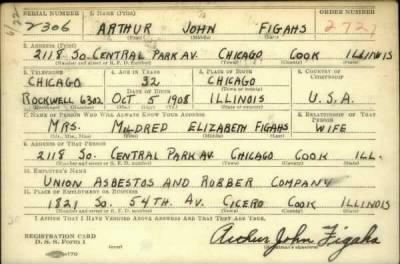 SERIAL NUMBER 1. NAME (Print) ORDER NUMBER
2306 ARTHUR JOHN FIGAHS 2727
(First) (Middle) (Last)
2. ADDRESS (Print)
2118 SO. CENTRAL PARK AV. CHICAGO COOK ILLINOIS
(Number and street or R. F. D. number) (Town) (County) (State)
3. TELEPHONE 4. AGE IN YEARS 5. PLACE OF BIRTH 6. COUNTRY OF CITIZENSHIP
CHICAGO 32 CHICAGO
DATE OF BIRTH (Town or county)
ROCKWELL 6302 OCT 5 1908 ILLINOIS U.S.A.
(Exchange) (Number) (Mo.) (Day) (Yr.) (State or country)
7. NAME OF PERSON WHO WILL ALWAYS KNOW YOUR ADDRESS 8. RELATIONSHIP OF THAT PERSON
MRS. MILDRED ELIZABETH FIGAHS WIFE
(Mr., Mrs., Miss) (First) (Middle) (Last)
9. ADDRESS OF THAT PERSON
2118 SO. CENTRAL PARK AV CHICAGO COOK ILL.
(Number and street or R. F. D. number) (Town) (County) (State)
10. EMPLOYER'S NAME
UNION ASBESTOS AND RUBBER COMPANY
11. PLACE OF EMPLOYMENT OR BUSINESS
1821 SO. 54TH. AV. CICERO COOK ILLINOIS
(Number and street or R. F. D. number) (Town) (County) (State)
I AFFIRM THAT I HAVE VERIFIED ABOVE ANSWERS AND THAT THEY ARE TRUE.
REGISTRATION CARD
D. S. S. Form 1
Arthur John Figahs